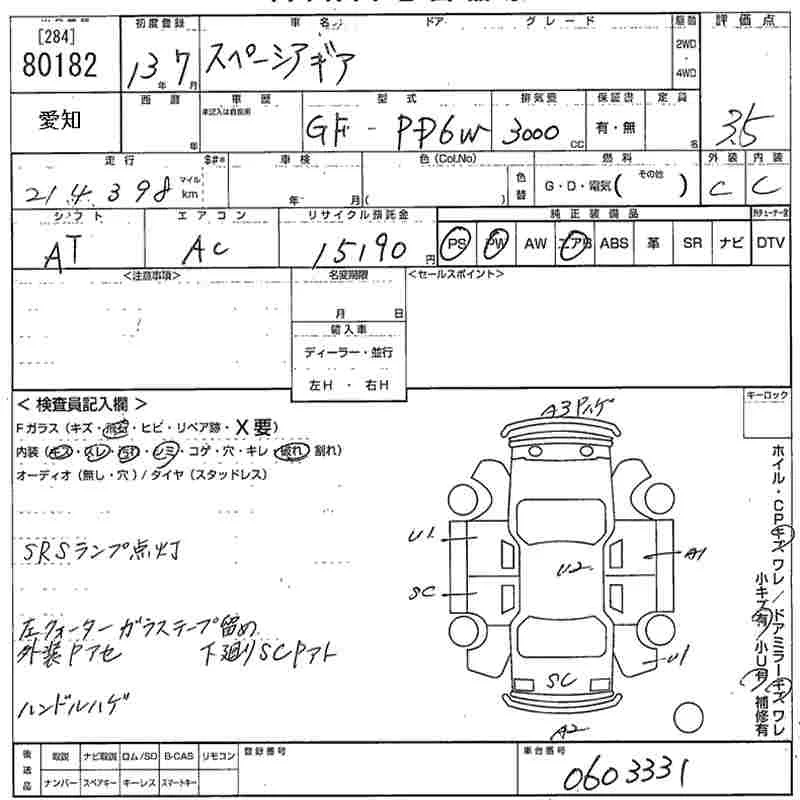 [284]
80182
愛知
初度登録
13年7月
車名
スペーシアギア
ドア
グレード
駆動
2WD
・
4WD
評価点
3.5
西暦
年
車歴
未記入は自家用
型式
GF-PD6W
排気量
3000 cc
保証書
有・無
定員
名
走行
214,398
マイル
km
$#*
車検
年 月
色(Col.No)
( )
色替
燃料
G・D・電気( その他 )
外装
C
内装
C
シフト
AT
エアコン
AC
リサイクル預託金
15190円
純正装備品
PS PW AW エアB ABS 革 SR ナビ DTV
<注意事項>
名変期限
月 日
輸入車
ディーラー・並行
左H ・ 右H
<セールスポイント>
キーロック
< 検査員記入欄 >
Fガラス(キズ・飛石・ヒビ・リペア跡・X要)
内装(キズ・スレ・汚れ・シミ・コゲ・穴・キレ・破れ 割れ)
オーディオ(無し・穴)/タイヤ(スタッドレス)
SRSランプ点灯
左クォーターガラステープ留め
外装Pアセ 下廻りSCPアト
ハンドルハゲ
A3Pハゲ
U1
A1
U2
SC
U1
SC
A2
ホイル・CPキズ ワレ/ドアミラーキズ ワレ
小キズ有/小U有 補修有
後送品
取説 ナビ取説 ロム/SD B-CAS リモコン
ナンバー スペアキー キーレス スマートキー
登録番号
車台番号
0603331